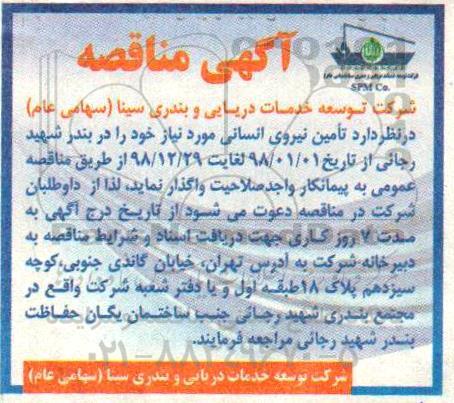 آگهی مناقصه
شرکت توسعه خدمات دریایی و بندری سینا (سهامی عام)
SPM Co.
شرکت توسعه خدمات دریایی و بندری سینا (سهامی عام)
درنظردارد تأمین نیروی انسانی مورد نیاز خود را در بندر شهید
رجائی از تاریخ ۹۸/۰۱/۰۱ لغایت ۹۸/۱۲/۲۹ از طریق مناقصه
عمومی به پیمانکار واجدصلاحیت واگذار نماید، لذا از داوطلبان
شرکت در مناقصه دعوت می شود از تاریخ درج آگهی به
مدت ۷ روز کاری جهت دریافت اسناد و شرایط مناقصه به
دبیرخانه شرکت به آدرس تهران، خیابان گاندی جنوبی،کوچه
سیزدهم پلاک ۱۸طبقه اول و یا دفتر شعبه شرکت واقع در
مجتمع بندری شهید رجائی جنب ساختمان یگان حفاظت
بندر شهید رجائی مراجعه فرمایند.
شرکت توسعه خدمات دریایی و بندری سینا (سهامی عام)